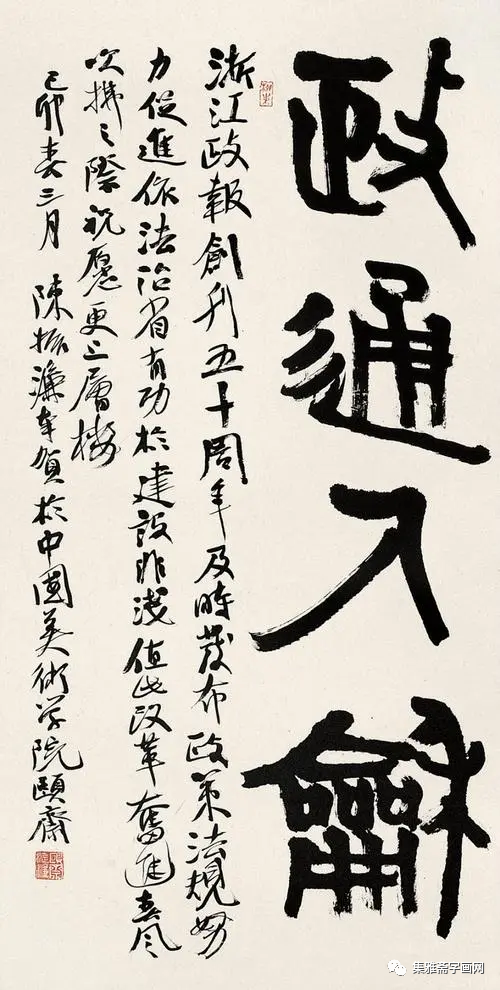 政通人龢
浙江政報創刊五十周年及時發布政策法規努
力促進依法治省有功於建設非淺值此改革奮進春風
吹拂之際祝愿更上層樓
己卯春三月 陳振濂奉賀於中國美術学院頤齋
集雅斋字画网